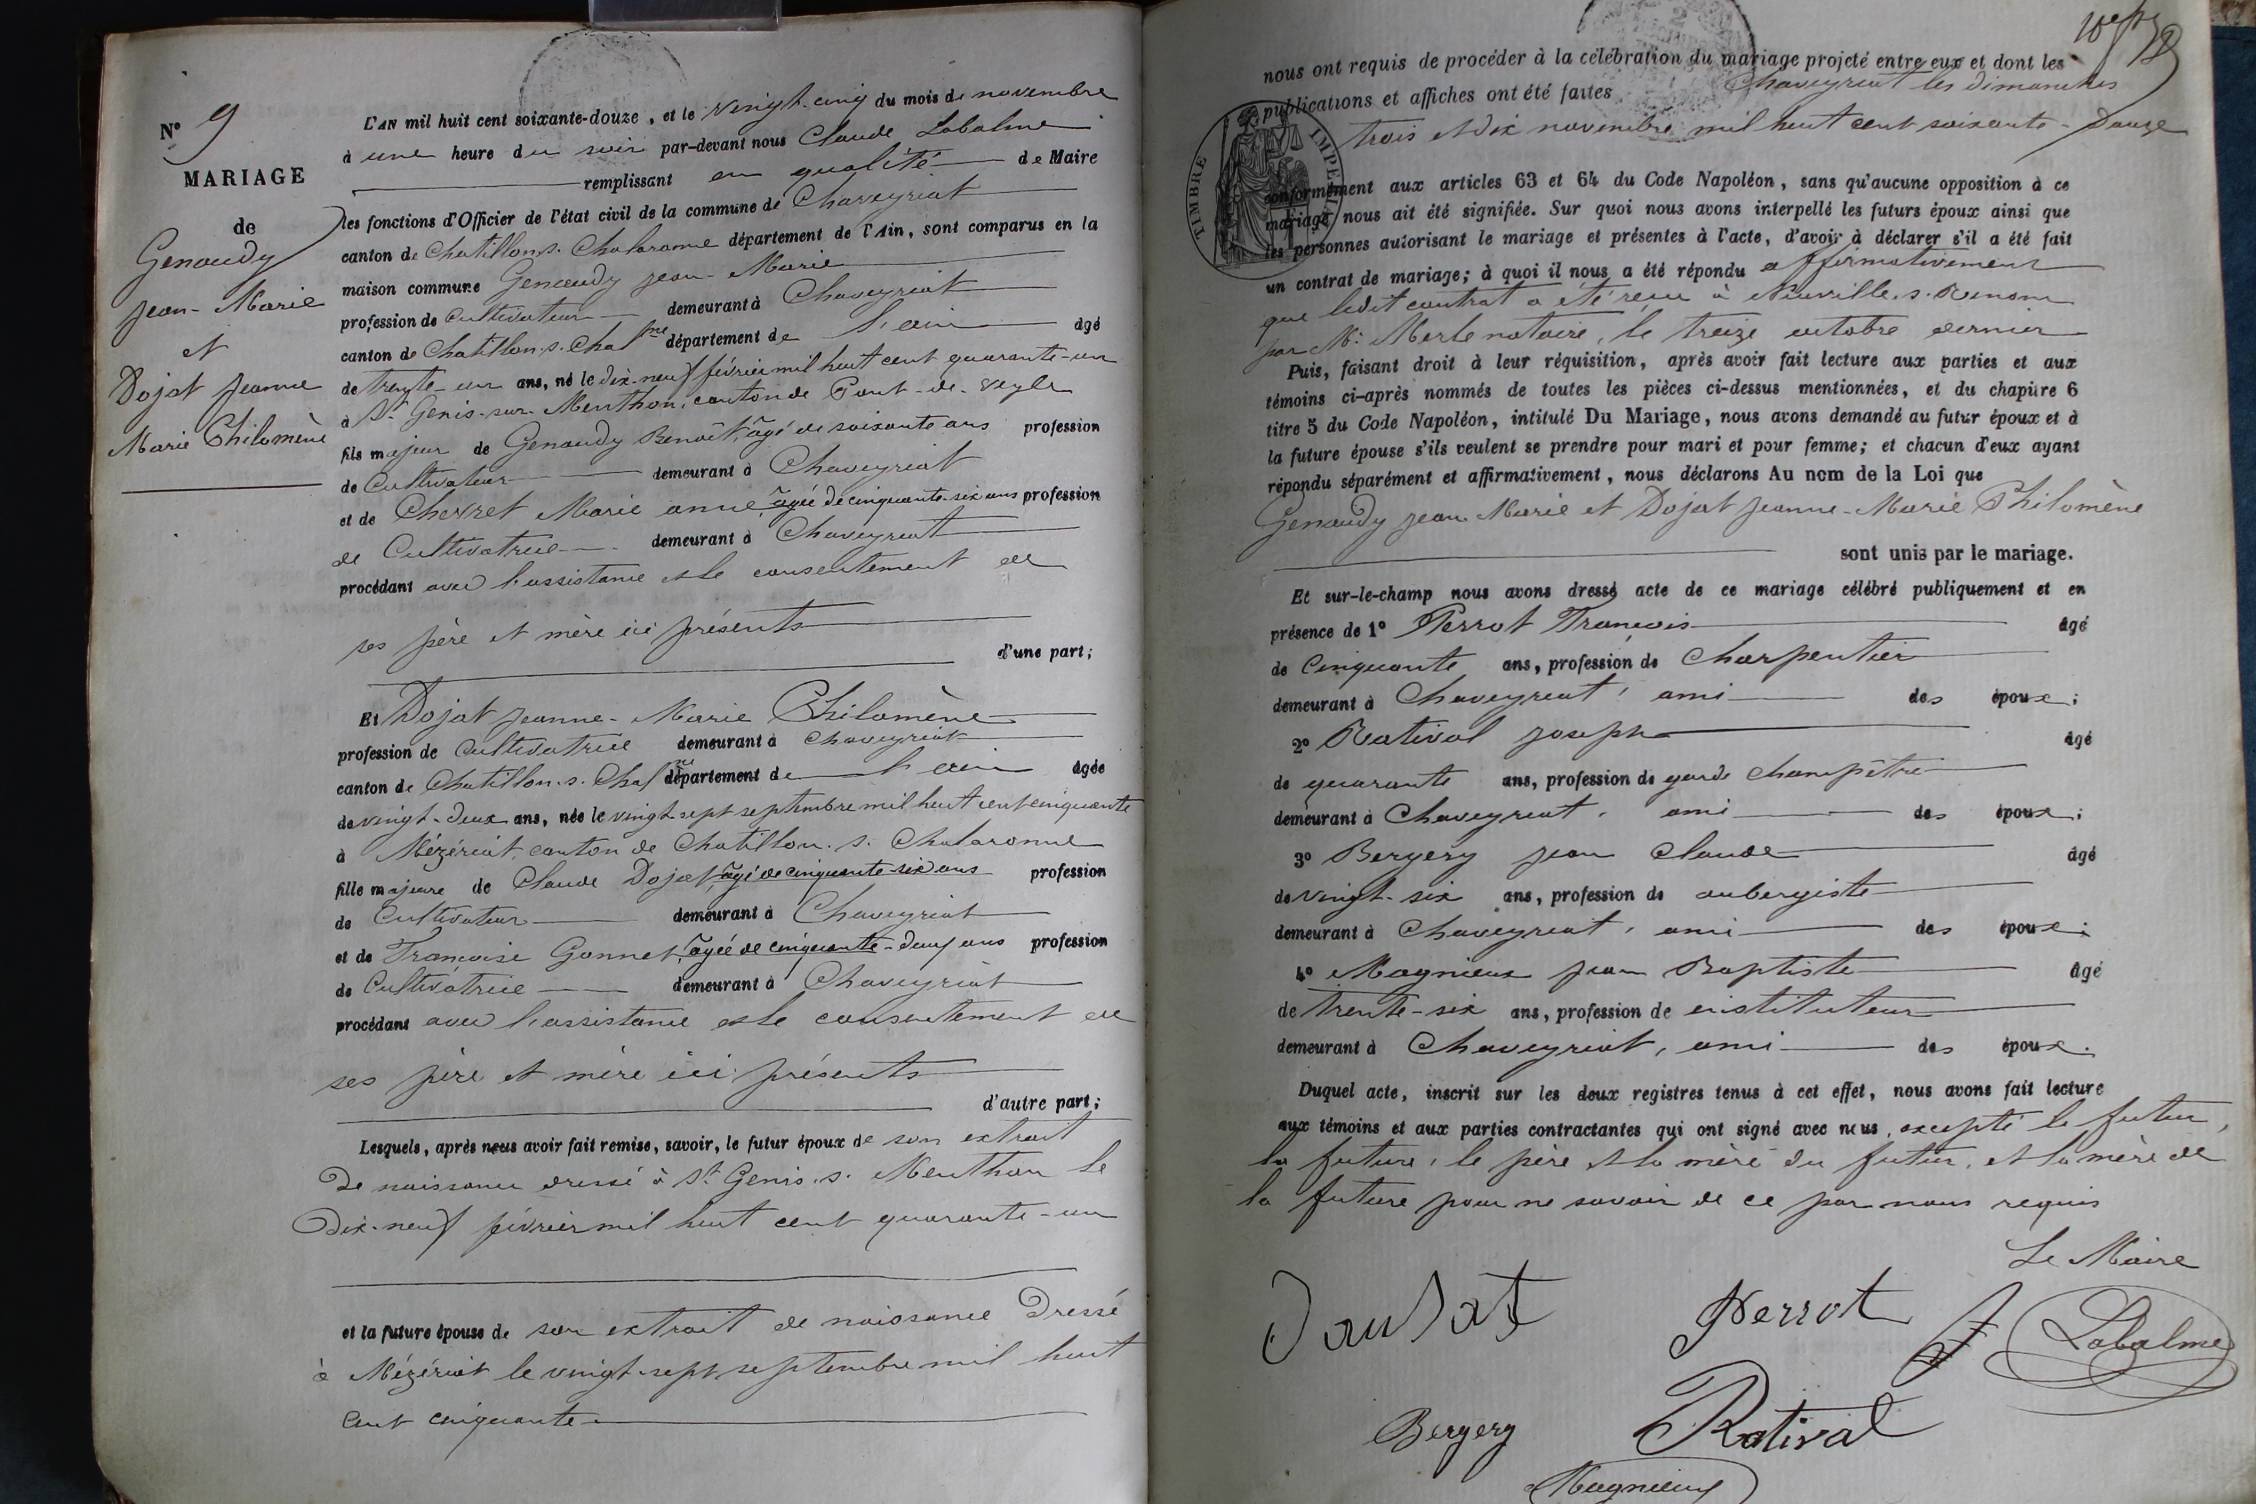 N° 9
MARIAGE
de
Genaudy
Jean-Marie
et
Dojat Jeanne
Marie Philomène
L'AN mil huit cent soixante-douze, et le vingt-cinq du mois de novembre
à une heure du soir par-devant nous Claude Labalme
remplissant en qualité de Maire
les fonctions d'Officier de l'état civil de la commune de Chaveyriat
canton de Chatillon-s-Chalaronne département de l'Ain, sont comparus en la
maison commune Genaudy Jean-Marie
profession de cultivateur demeurant à Chaveyriat
canton de Chatillon-s-Chalne département de l'ain âgé
de trente-un ans, né le dix-neuf février mil huit cent quarante-un
à St Genis-sur-Menthon, canton de Pont-de-Veyle
fils majeur de Genaudy Benoît, âgé de soixante ans profession
de Cultivateur demeurant à Chaveyriat
et de Chevret Marie anne, âgée de cinquante-six ans profession
de Cultivatrice demeurant à Chaveyriat
procédant avec l'assistance et le consentement de
ses père et mère ici présents
d'une part;
Et Dojat Jeanne-Marie Philomène
profession de cultivatrice demeurant à Chaveyriat
canton de Chatillon-s-Chalne département de l'ain âgée
de vingt-deux ans, née le vingt-sept septembre mil huit cent cinquante
à Mézériat, canton de Chatillon-s-Chalaronne
fille majeure de Claude Dojat, âgé de cinquante-six ans profession
de Cultivateur demeurant à Chaveyriat
et de Françoise Gonnet, âgée de cinquante-deux ans profession
de Cultivatrice demeurant à Chaveyriat
procédant avec l'assistance et le consentement de
ses père et mère ici présents
d'autre part;
Lesquels, après nous avoir fait remise, savoir, le futur époux de son extrait
de naissance dressé à St Genis-s-Menthon le
Dix-neuf février mil huit cent quarante-un
et la future épouse de son extrait de naissance dressé
à Mézériat le vingt-sept septembre mil huit
cent cinquante
nous ont requis de procéder à la célébration du mariage projeté entre eux et dont les
publications et affiches ont été faites Chaveyriat les dimanches
trois et dix novembre mil huit cent soixante-Douze
TIMBRE IMPE
conformément aux articles 63 et 64 du Code Napoléon, sans qu'aucune opposition à ce
mariage nous ait été signifiée. Sur quoi nous avons interpellé les futurs époux ainsi que
les personnes autorisant le mariage et présentes à l'acte, d'avoir à déclarer s'il a été fait
un contrat de mariage; à quoi il nous a été répondu affirmativement
que ledit contrat a été reçu à Neuville-s-Renom
par Me Merle notaire, le treize octobre dernier
Puis, faisant droit à leur réquisition, après avoir fait lecture aux parties et aux
témoins ci-après nommés de toutes les pièces ci-dessus mentionnées, et du chapitre 6
titre 5 du Code Napoléon, intitulé Du Mariage, nous avons demandé au futur époux et à
la future épouse s'ils veulent se prendre pour mari et pour femme; et chacun d'eux ayant
répondu séparément et affirmativement, nous déclarons Au nom de la Loi que
Genaudy Jean-Marie et Dojat Jeanne-Marie Philomène
sont unis par le mariage.
Et sur-le-champ nous avons dressé acte de ce mariage célébré publiquement et en
présence de 1° Perrot François âgé
de Cinquante ans, profession de Charpentier
demeurant à Chaveyriat, ami des époux;
2° Rativał Joseph âgé
de quarante ans, profession de garde champêtre
demeurant à Chaveyriat, ami des époux;
3° Bergery Jean Claude âgé
de vingt-six ans, profession de aubergiste
demeurant à Chaveyriat, ami des époux;
4° Magnieux Jean Baptiste âgé
de trente-six ans, profession de instituteur
demeurant à Chaveyriat, ami des époux.
Duquel acte, inscrit sur les deux registres tenus à cet effet, nous avons fait lecture
aux témoins et aux parties contractantes qui ont signé avec nous, excepté le futur,
la future, le père et la mère du futur, et la mère de
la future pour ne savoir de ce par nous requis
Le Maire
Perrot
Labalme
Bergery
Rativał
Magnieux